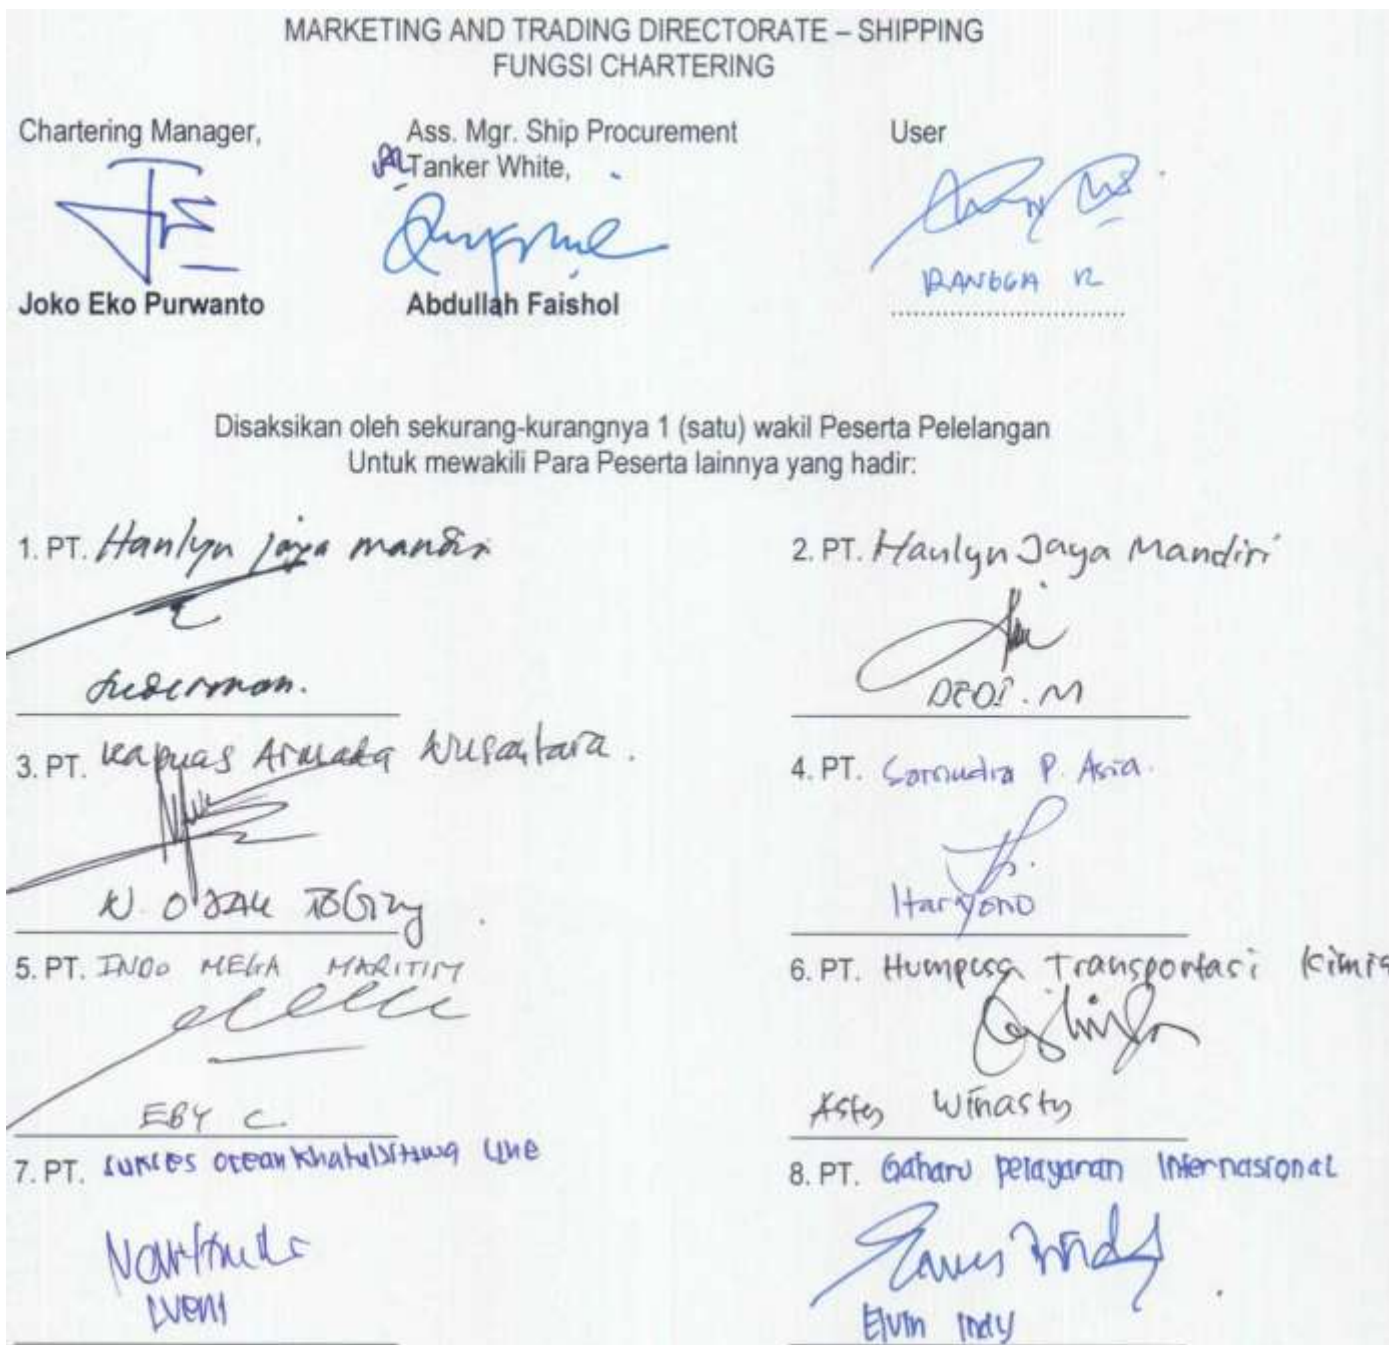 MARKETING AND TRADING DIRECTORATE – SHIPPING
FUNGSI CHARTERING
Chartering Manager,
Ass. Mgr. Ship Procurement
Tanker White,
User
Joko Eko Purwanto
Abdullah Faishol
RANGGA R
Disaksikan oleh sekurang-kurangnya 1 (satu) wakil Peserta Pelelangan
Untuk mewakili Para Peserta lainnya yang hadir:
1. PT. Hanlyn jaya mandiri
2. PT. Hanlyn Jaya Mandiri
DEDI. M
3. PT. Kapuas Armada Nusantara.
4. PT. Samudra P. Asia.
Haryono
5. PT. INDO MEGA MARITIM
6. PT. Humpuss Transportasi Kimia
EBY C.
Winasty
7. PT. sukses ocean khatulistiwa Line
8. PT. Gaharu pelayaran Internasional
Elvin Indy